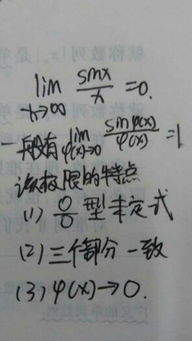 lim sinx/x = 0.
x→∞
一般有 lim sinφ(x)/φ(x) = 1
φ(x)→0
该极限的特点
(1) 0/0 型未定式
(2) 三个部分一致
(3) φ(x)→0.